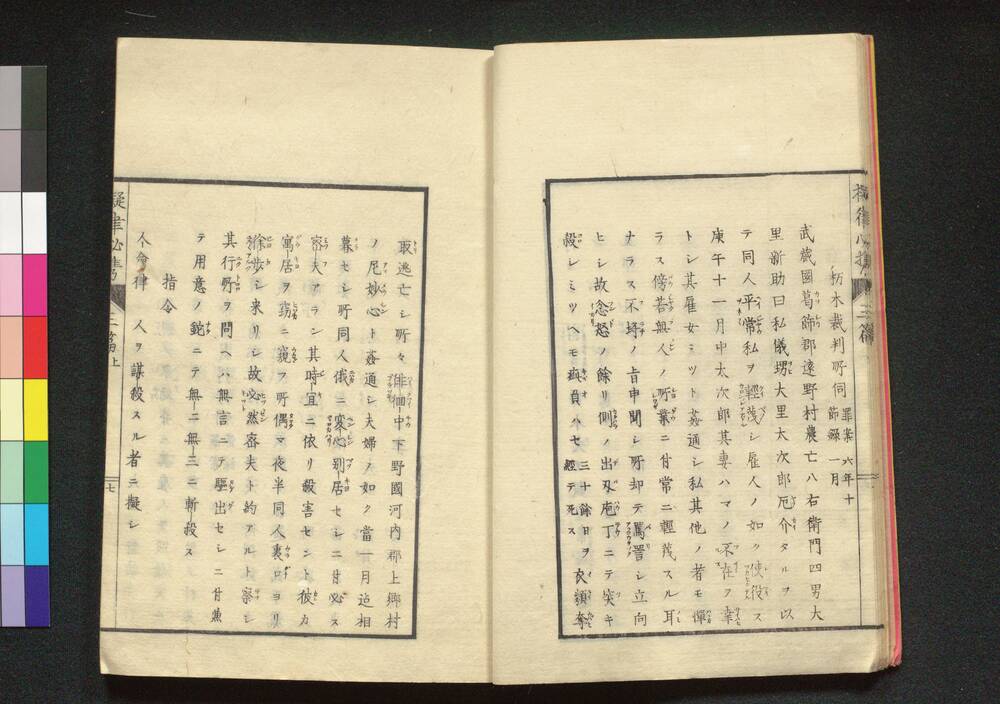 栃木裁判所伺 罪案節録 六年十一月
武蔵國葛飾郡遠野村農亡八右衛門四男大
里新助曰私儀甥大里太次郎厄介タルヲ以
テ同人平常私ヲ輕蔑シ雇人ノ如ク使役ス
庚午十一月中太次郎其妻ハマノ不在ヲ幸
トシ其雇女ミツト姦通シ私其他ノ者モ憚
ラス傍若無人ノ所業ニ付常ニ輕蔑スル耳
ナラス不埒ノ旨申聞シ所却テ罵詈シ立向
ヒシ故忿怒ノ餘リ側ノ出刃庖丁ニテ突キ
殺シミツヘモ疵負ハセ 三十餘日ヲ經テ死ス 衣類奪
取逃亡シ所々俳徊中下野國河内郡上郷村
ノ尼妙心ト姦通シ夫婦ノ如ク當一月迄相
暮セシ所同人俄ニ寒心別居セシニ付必ス
密夫アラン其時宜ニ依リ殺害セント彼カ
寓居ヲ竊ニ窺フ所偶マ夜半同人裏口ヨリ
徐歩シ来リシ故必然密夫ト約アルト察シ
其行所ヲ問ヘハ無言ニテ驅出セシニ付兼
テ用意ノ鉈ニテ無二無三ニ斬殺ス
指令
人命律 人ヲ謀殺スル者ニ擬シ
七